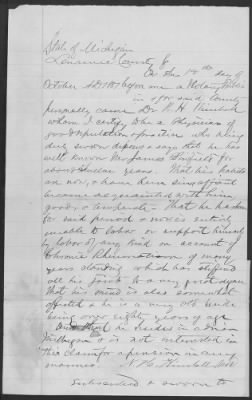 State of Michigan
Lenawee County
On this 14th day of
October AD 1887 before me a Notary Public
in & for said County
personally came Dr. N. H. Kimball
whom I certify to be a Physician of
good reputation & practice who being
duly sworn deposes & says that he has
well known Mr. James
about twelve years. That his habits
are now, & have been since
became acquainted with him
good & temperate. That he has been
for said period & now is entirely
unable to labor or support himself
by labor of any kind on account of
Chronic Rheumatism of many
years standing which has stiffened
all his joints to a very great degree
that his mind is also somewhat
affected & he is a very old
being over eighty years of age
that he resides in Adrian
Michigan & is not interested in
this Claim for a pension in any
manner. N. H. Kimball M.D.
Subscribed & sworn to